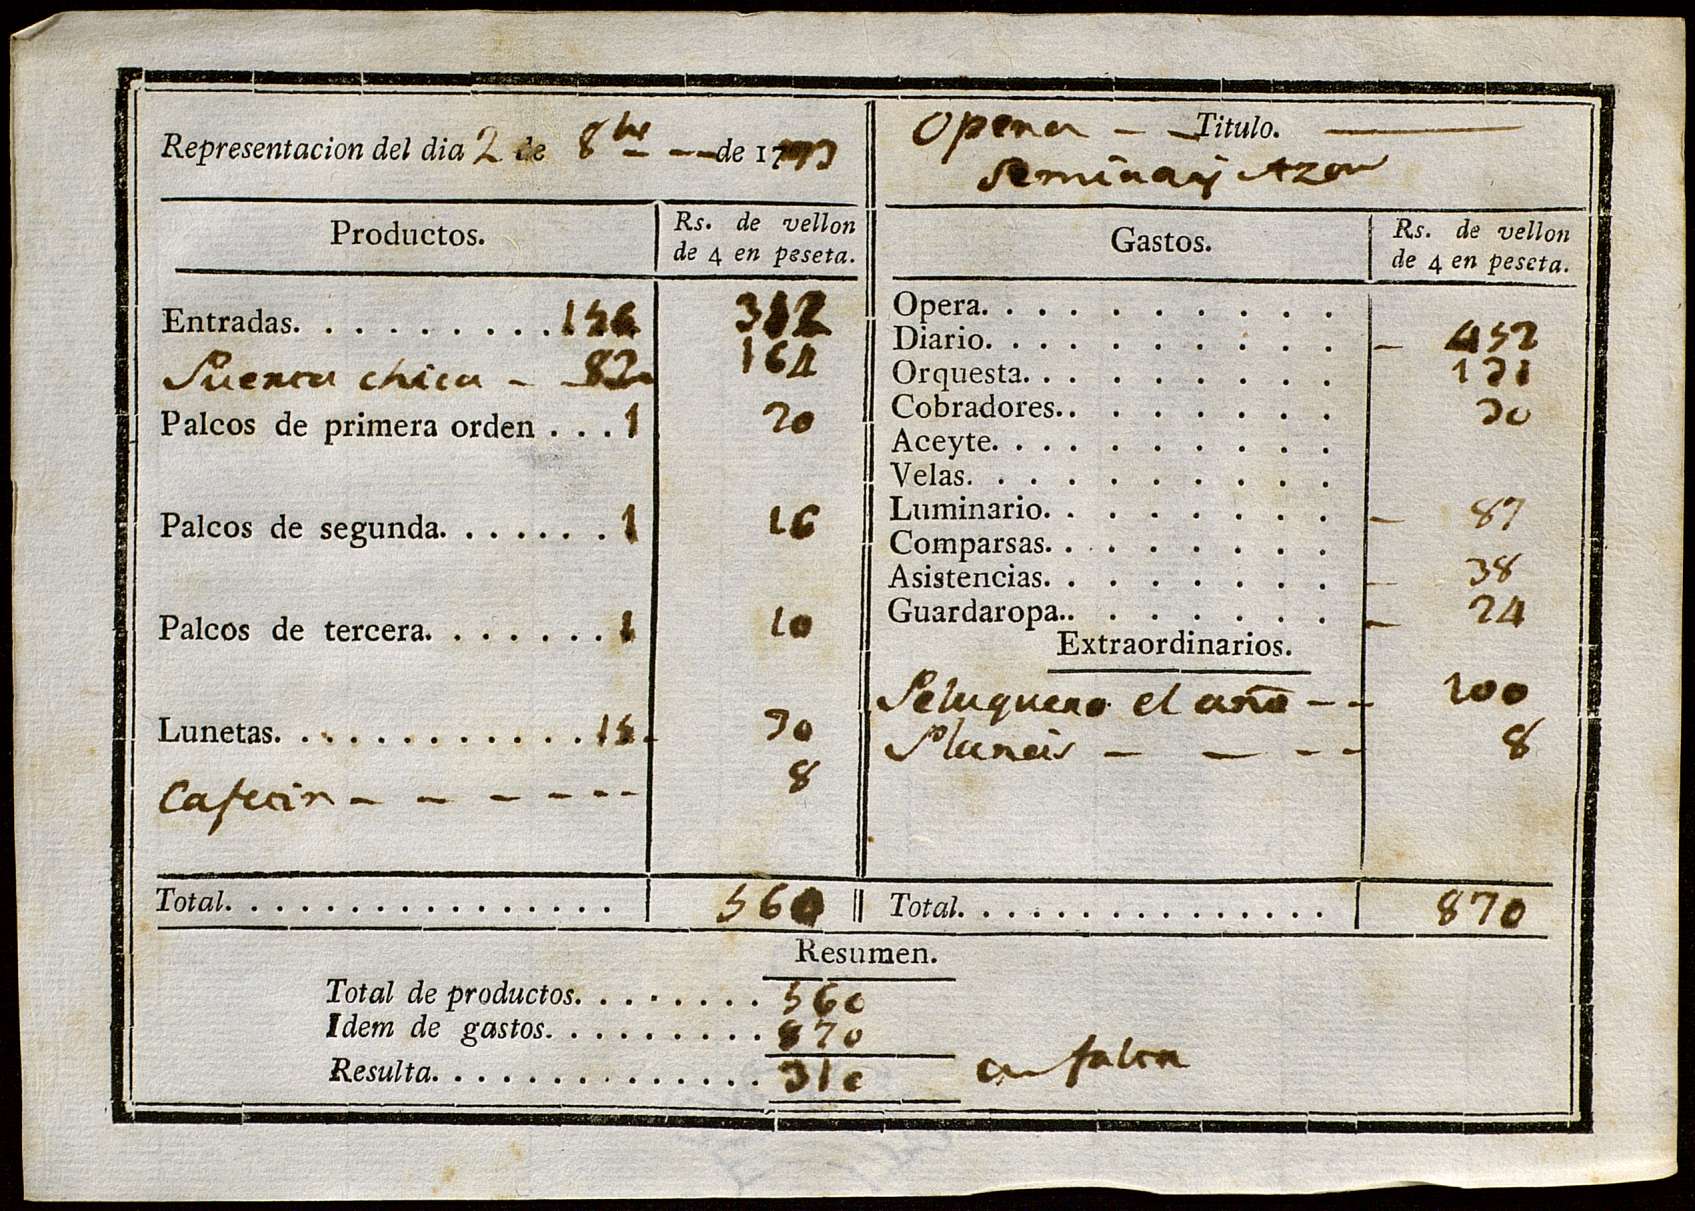 Representacion del dia 2 de 8bre de 1793
Opera Titulo.
Semira y Azor
Productos. Rs. de vellon de 4 en peseta.
Entradas. 156 312
Puerta chica 82 164
Palcos de primera orden 1 20
Palcos de segunda. 1 16
Palcos de tercera. 1 10
Lunetas. 15 30
Cafecin 8
Total. 560
Gastos. Rs. de vellon de 4 en peseta.
Opera.
Diario. 452
Orquesta. 131
Cobradores. 30
Aceyte.
Velas.
Luminario. 87
Comparsas.
Asistencias. 38
Guardaropa. 24
Extraordinarios.
Peluquero el año 100
8
Total. 870
Resumen.
Total de productos. 560
Idem de gastos. 870
Resulta. 310 en falta